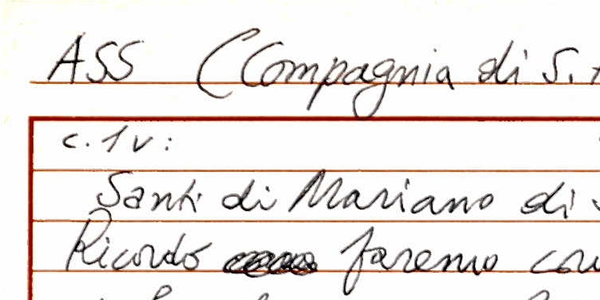 ASS (Compagnia di S.
c. 1v:
Santi di Mariano di
Ricordo faremo